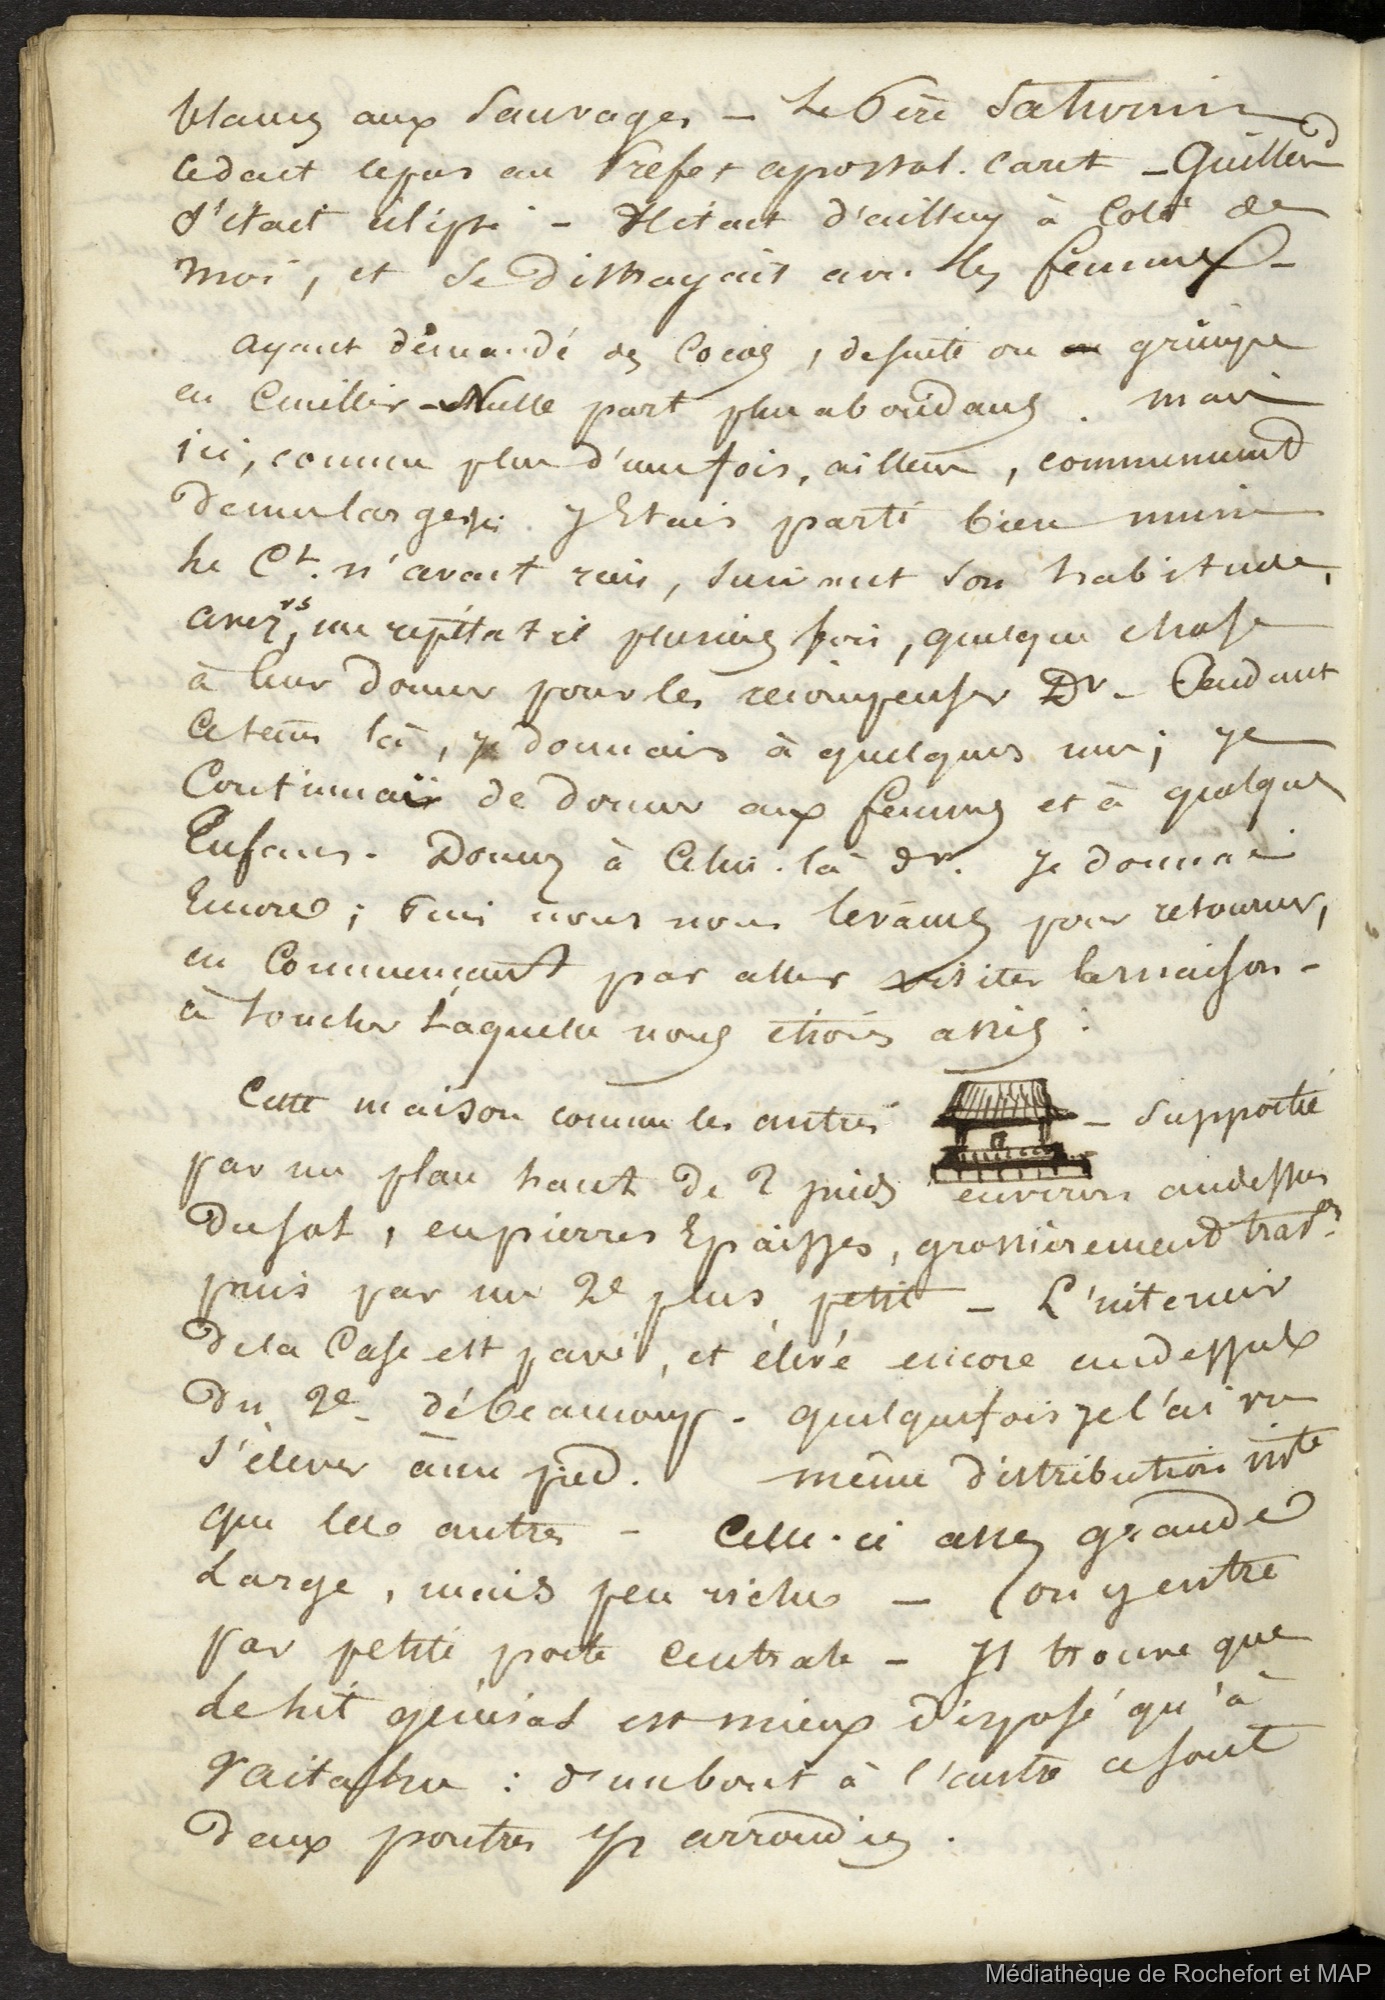 blancs aux Sauvages – Le Père Saturnin
cédait le pas au Préfet apostol. Caret – Guillerd
s'était éclipsé – Il était d'ailleurs à Coté de
moi, et Se distrayait avec les femmes –
ayant demandé des Cocos, de suite on grimpe
en Cueillir – Nulle part plus abondans. Mais
ici, comme plus d'une fois, ailleurs, commencement
De mes largesses. J'Etais parti bien muni
Le Ct. n'avait rien, suivant son habitude,
avez vs, me répétat il plusieurs fois, quelque chose
à leur donner pour les récompenser Dr – Pendant
ce tems là, je donnais à quelques uns ; je
Continuais de donner aux femmes et à quelques
Enfans. Donnez à Celui-là dr. Je donnai
Encore ; Puis nous nous levâmes pour retourner,
en Commençant par aller visiter la maison –
à toucher Laquelle nous étions assis :
Cette maison comme les autres – Supportée
par un plan haut De 2 pieds environ audessus
Du sol, en pierres Epaisses, grossièrement trav.es
puis par un 2e plus petit – L'intérieur
De la Case est pavé, et élevé encore audessus
Du 2e – de beaucoup. quelquefois je l'ai vu
s'élever à un pied. même distribution inte
que les autres – Celle-ci assez grande
Large, mais peu riche – (on y entre
par petite porte Centrale – Il trouve que
Le lit général est mieux disposé qu'à
Vaitahu : d'un bout à l'autre ce sont
Deux poutres arrondies.
Médiathèque de Rochefort et MAP